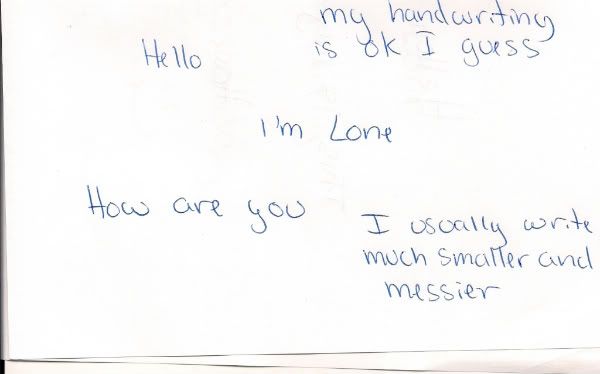 my handwriting
is ok I guess
Hello
I'm Lone
How are you
I usually write
much smaller and
messier